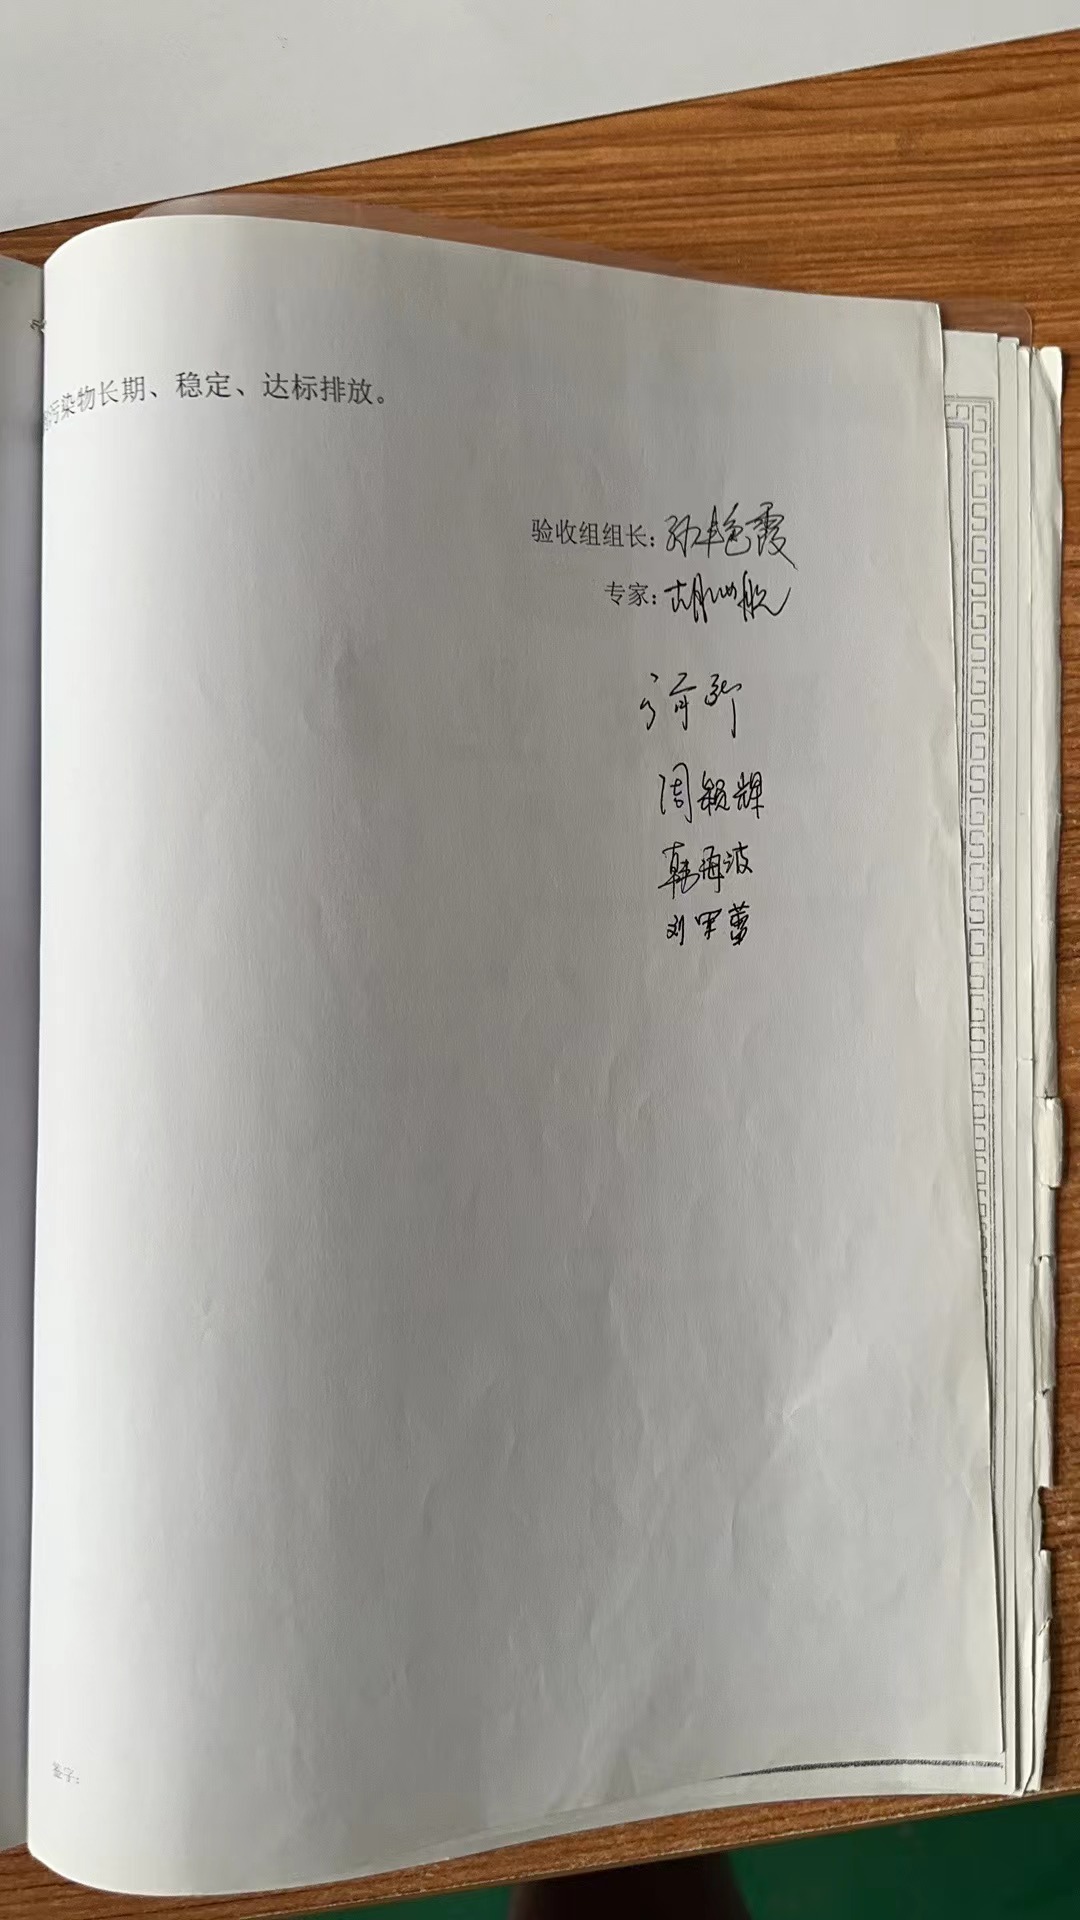 污染物长期、稳定、达标排放。
验收组组长：孙艳霞
专家：胡
周颖辉
韩再波
刘军蕾
签字：